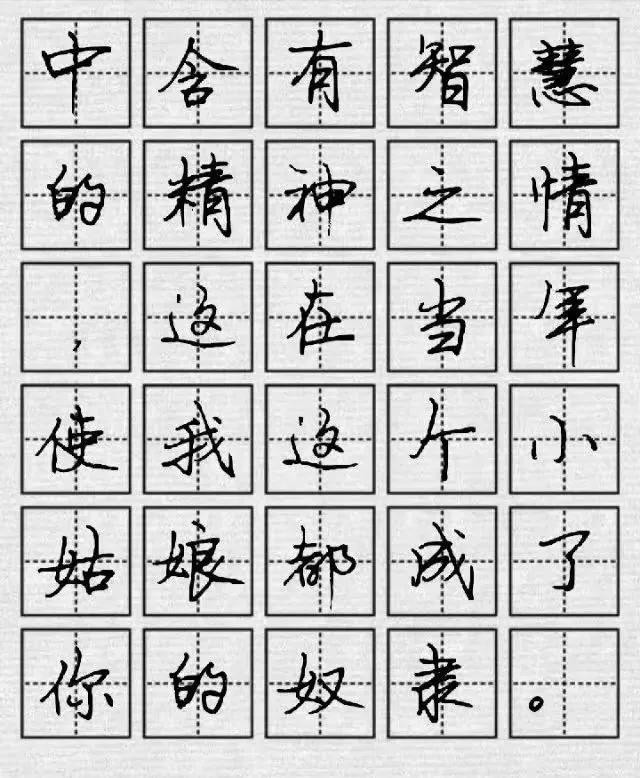 中含有智慧
的精神之情
，这在当年
使我这个小
姑娘都成了
你的奴隶。